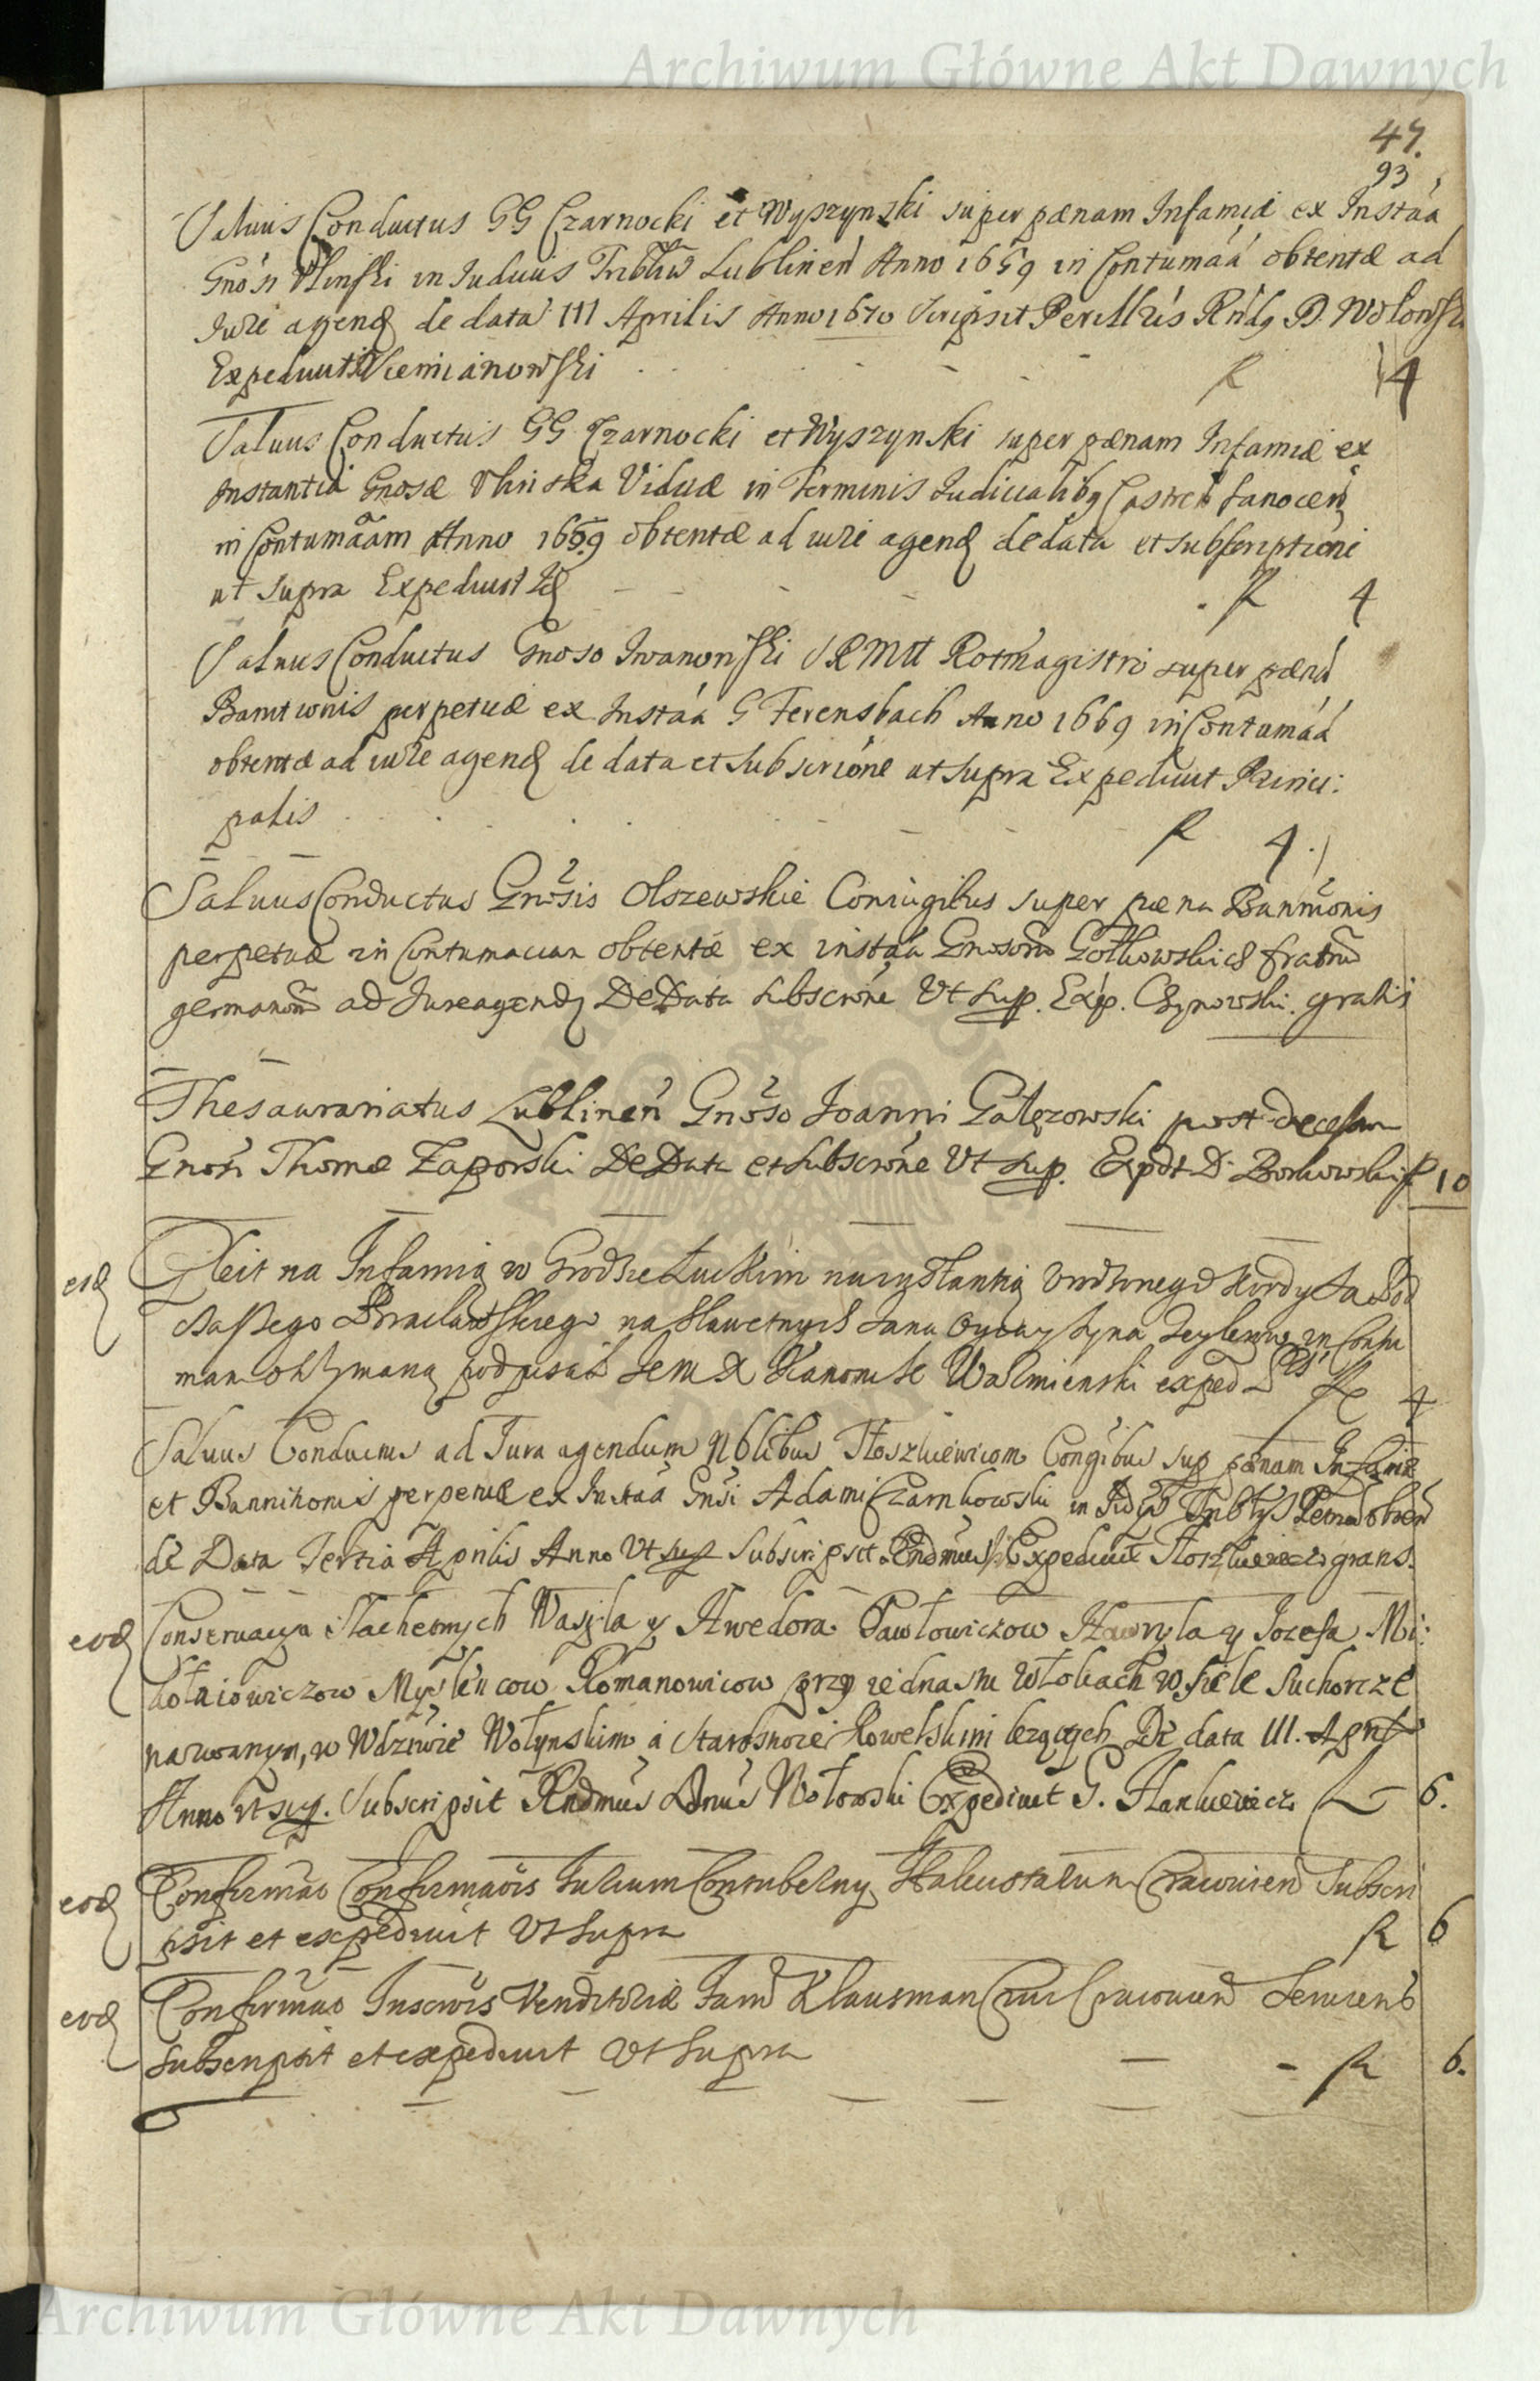 Archiwum Główne Akt Dawnych
47.
93
Salvus Conductus GG Czarnocki et Wyszynski super pœnam Infamiæ ex Instáá
Gnósi in Iudiciis Triblŭ Lublinen Anno 1669 in Contumáá obtentæ ad
iure agend de data III Aprilis Anno 1670 Scripsit Perillris Rnds D. Wołowski
Expedivit Siemianowski f 4
Salvus Conductus GG Czarnocki et Wyszynski super pœnam Infamiæ ex
Instantia Gnosæ Viduæ in Terminis Iudicialibq Castren Sanocen
in Contumãam Anno 1669 obtentæ ad iure agend de data et subscriptione
ut supra Expedivit Id f 4
Salvus Conductus Gnoso Iwanowski SRMtt Rotmagistro super pœná
Banitionis perpetuæ ex Instáá G Ferensbach Anno 1669 in Contumáá
obtentæ ad iure agend de data et subscrióne ut supra Expedivit Princi:
palis f 4.
Salvus Conductus Gnósis Olszewskie Coniugibus super pœna Bannióonis
perpetuæ in Contumaciam obtentæ ex instáá Gnosorũ fratrũ
germanorũ ad Iure agend De Data subscróne Ut sup. Exp. gratis
Thesaurariatus Lublinen Gnóso Joanni Gałęzowski post decessum
Gnósi Thomæ Zagorski De Data et subscróne Ut sup. Expdt D. Borkowski f 10
eod Gleit na Infamią w Grodzie Łuckim na instantią Urodzonego Pod
Bracławskiego na Sławetnych Jana syna in Contu
man otrzymaną podpisał Jem X Kanonik Warmienski exped f 4
Salvus Conductus ad Iura agendum Nblibus Coniugibus sup pœnam Infamiæ
et Bannitionis perpetuæ ex Instáá Gnsi Adami Czarnkowski in
de Data Tertia Aprilis Anno Ut sup Subscripsit Rndmus Expedivit gratis.
eod Conservacya Szlachetnych Wasyla y Hwedora Pawłowiczow Hawryla y Jozefa Mi:
kołaiowiczow Romanowicow przy iednastu Włokach w siele Suchorcze
nazwanym, w Wdztwie Wołynskim a Starostwie Kowelskim leżących De data III. Aprilis
Anno ut sup. Subscripsit Rndmus Dnus Wołowski Expedivit G. Hankiewicz f 6.
eod Confirmão Confirmaõis Iurium Contubelny Cracovien Subscri
psit et expedivit Ut Supra f 6
eod Confirmão Inscrõis Venditoriæ Klausman Cracovien
subscripsit et expedivit Ut Supra f 6.
Archiwum Główne Akt Dawnych